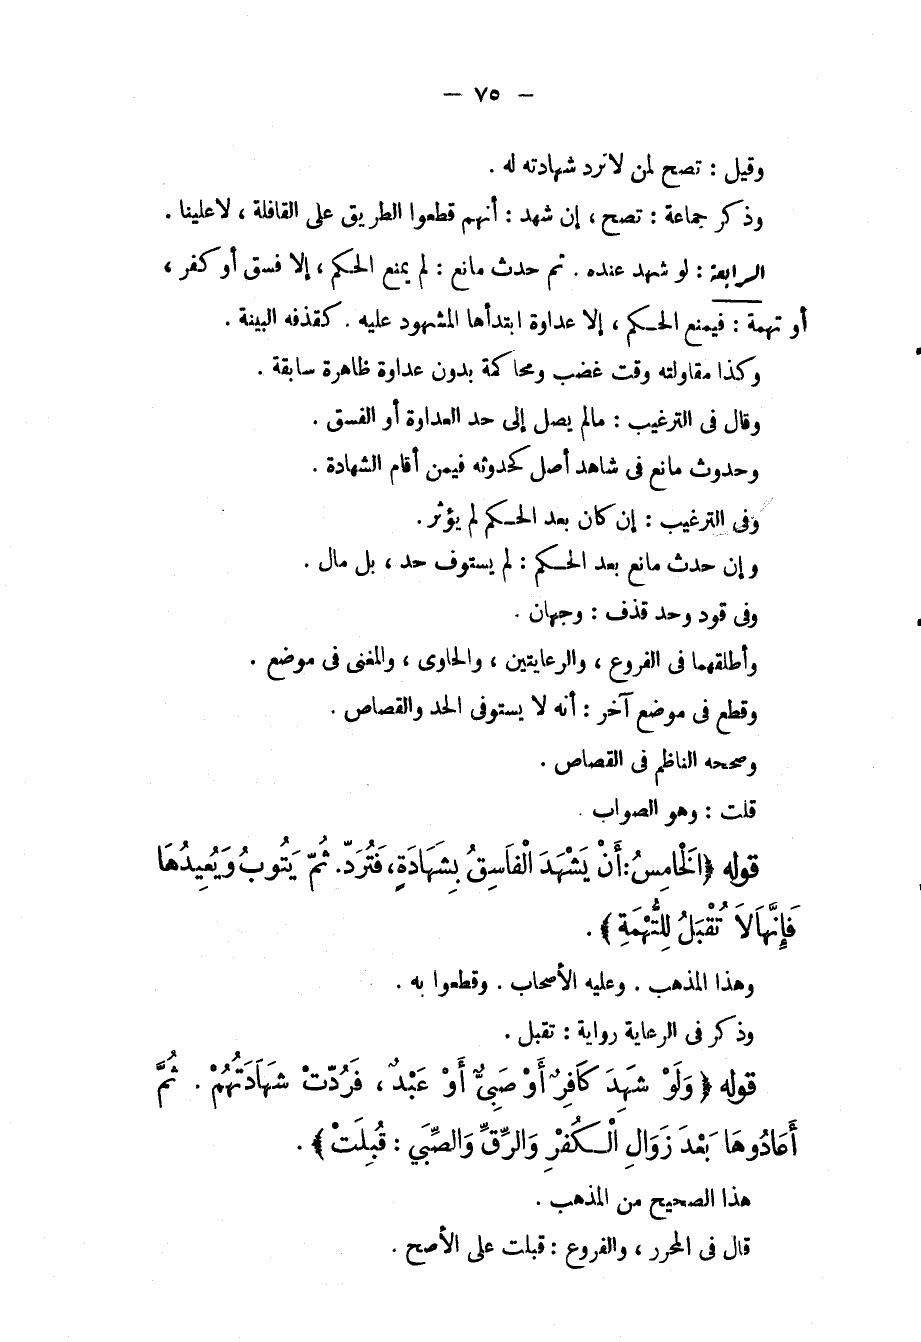 — ٧٥ —
وقيل : تصح لمن لا ترد شهادته له .
وذكر جماعة : تصح ، إن شهد : أنهم قطعوا الطريق على القافلة ، لا علينا .
الرابعة : لو شهد عنده . ثم حدث مانع : لم يمنع الحكم ، إلا فسق أو كفر ،
أو تهمة : فيمنع الحكم ، إلا عداوة ابتدأها المشهود عليه . كقذفه البينة .
وكذا مقاولته وقت غضب ومحاكمة بدون عداوة ظاهرة سابقة .
وقال فى الترغيب : مالم يصل إلى حد العداوة أو الفسق .
وحدوث مانع فى شاهد أصل كحدوثه فيمن أقام الشهادة .
وفى الترغيب : إن كان بعد الحكم لم يؤثر .
وإن حدث مانع بعد الحكم : لم يستوف حد ، بل مال .
وفى قود وحد قذف : وجهان .
وأطلقهما فى الفروع ، والرعايتين ، والحاوى ، والمغنى فى موضع .
وقطع فى موضع آخر : أنه لا يستوفى الحد والقصاص .
وصححه الناظم فى القصاص .
قلت : وهو الصواب .
قوله ﴿ اَلْخَامِسُ : أَنْ يَشْهَدَ الْفَاسِقُ بِشَهَادَةٍ ، فَتُرَدّ . ثُمّ يَتُوبُ وَيُعِيدُهَا
فَإِنَّهَا لَا تُقْبَلُ لِلتُّهْمَةِ ﴾ .
وهذا المذهب . وعليه الأصحاب . وقطعوا به .
وذكر فى الرعاية رواية : تقبل .
قوله ﴿ وَلَوْ شَهِدَ كَافِرٌ أَوْ صَبِىٌّ أَوْ عَبْدٌ ، فَرُدّتْ شَهَادَتُهُمْ . ثُمَّ
أَعَادُوهَا بَعْدَ زَوَالِ الْكُفْرِ وَالرِّقِّ وَالصِّبَي : قُبِلَتْ ﴾ .
هذا الصحيح من المذهب .
قال فى المحرر ، والفروع : قبلت على الأصح .